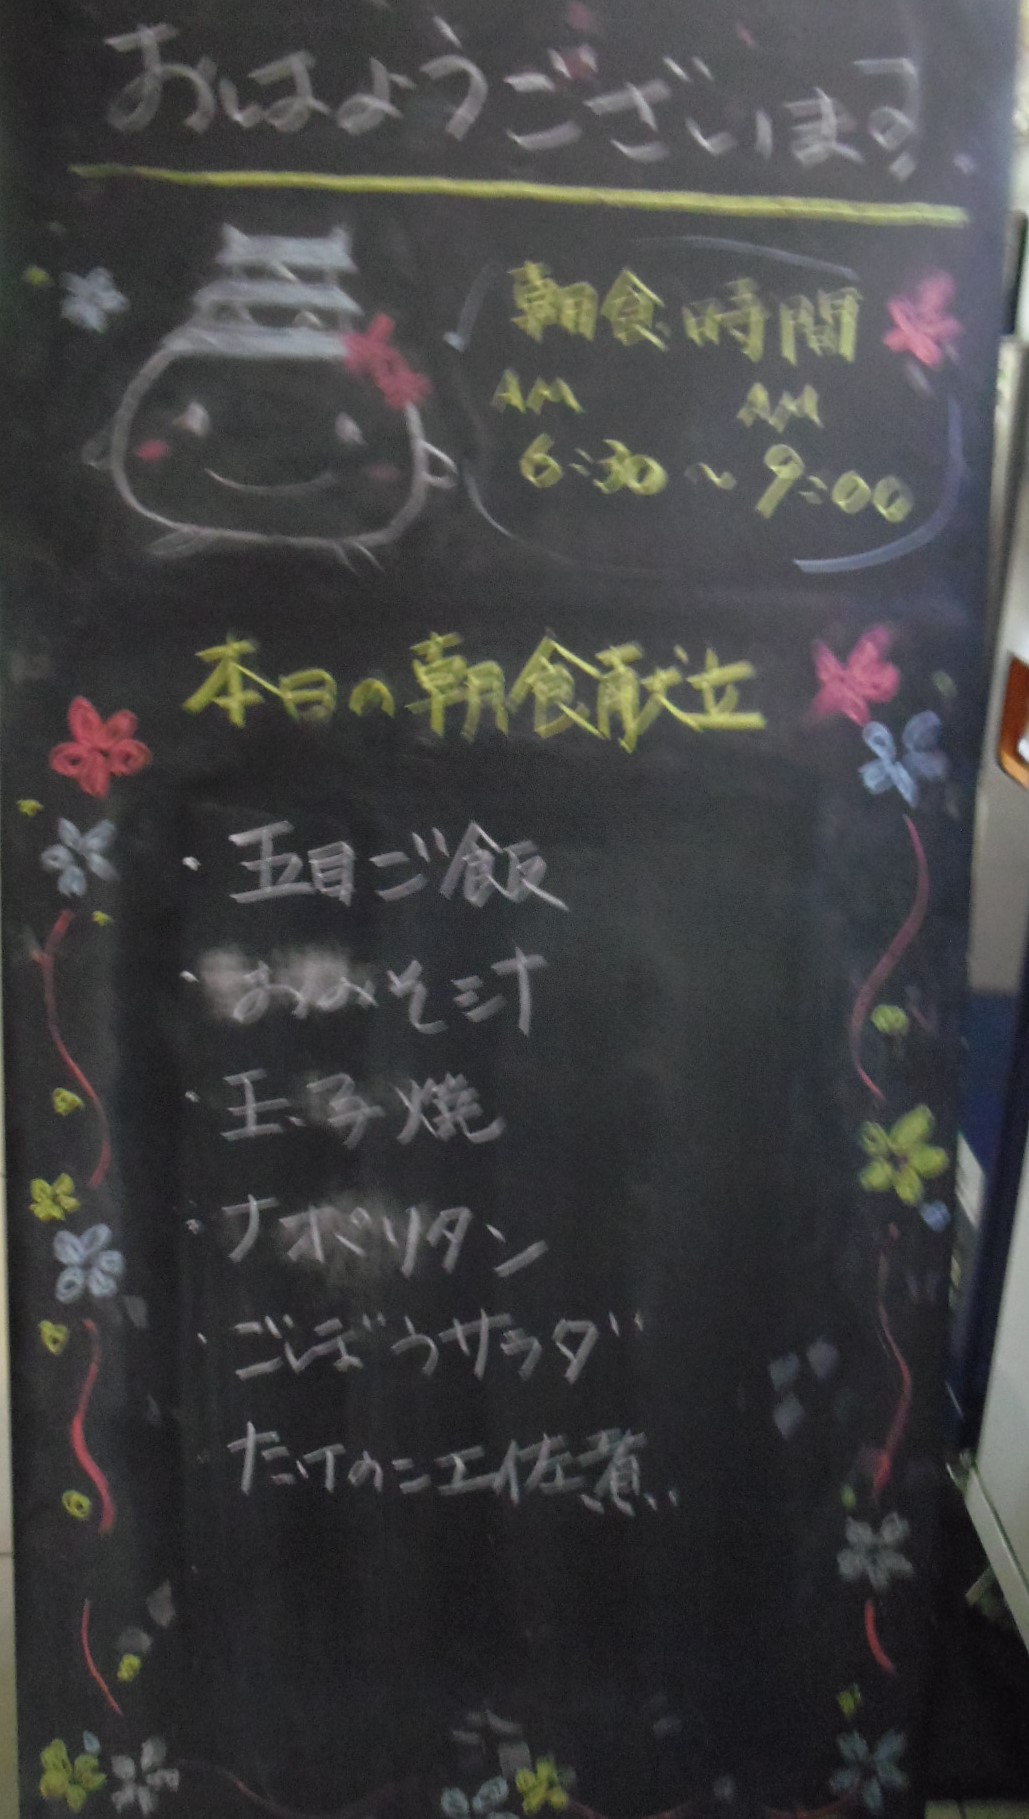 おはようございます。
朝食時間
AM AM
6:30〜9:00
本日の朝食献立
・五目ご飯
・おみそ汁
・玉子焼
・ナポリタン
・ごぼうサラダ
・たけのこ土佐煮